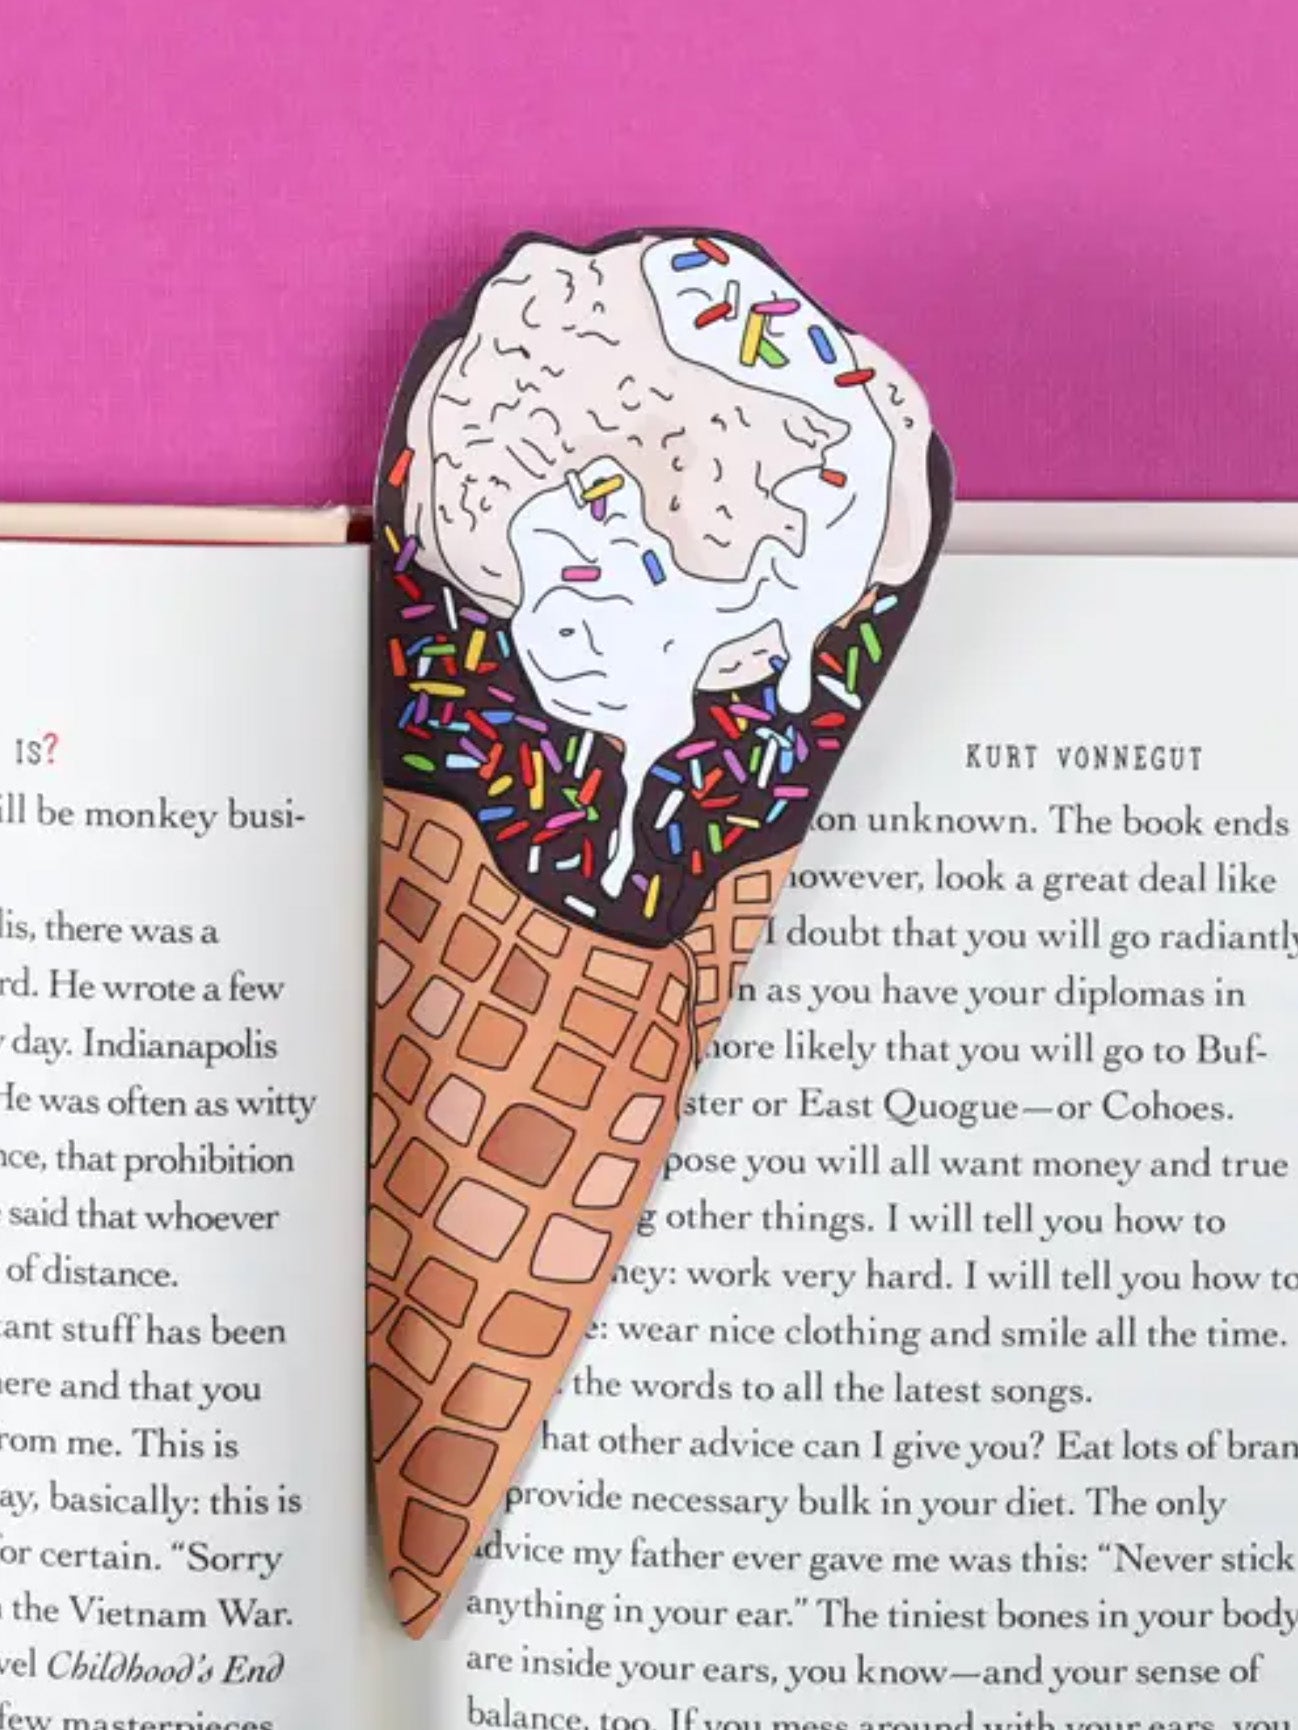 IS?
ill be monkey busi-
lis, there was a
rd. He wrote a few
day. Indianapolis
He was often as witty
nce, that prohibition
said that whoever
of distance.
tant stuff has been
here and that you
from me. This is
ay, basically: this is
or certain. “Sorry
the Vietnam War.
vel Childhood's End
few masterpieces
KURT VONNEGUT
on unknown. The book ends
however, look a great deal like
I doubt that you will go radiantly
n as you have your diplomas in
more likely that you will go to Buf-
ster or East Quogue—or Cohoes.
pose you will all want money and true
g other things. I will tell you how to
ney: work very hard. I will tell you how to
e: wear nice clothing and smile all the time.
the words to all the latest songs.
hat other advice can I give you? Eat lots of bran
provide necessary bulk in your diet. The only
advice my father ever gave me was this: “Never stick
anything in your ear.” The tiniest bones in your body
are inside your ears, you know—and your sense of
balance, too. If you mess around with your ears, you